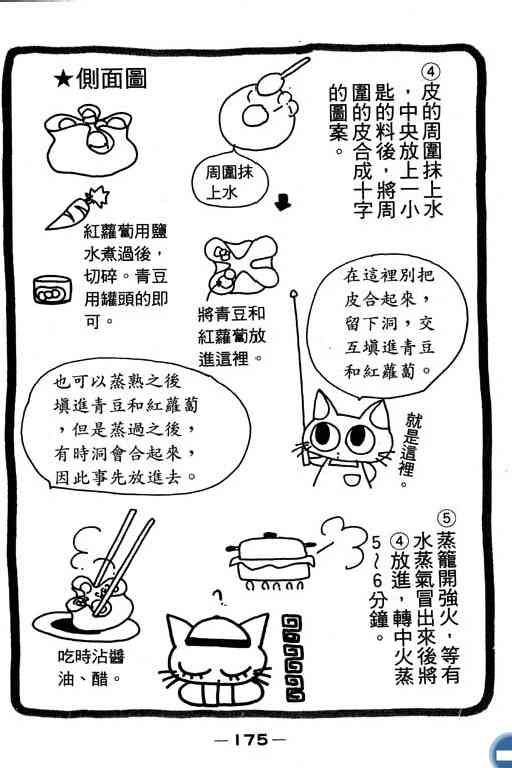 ④皮的周圍抹上水
，中央放上一小
匙的料後，將周
圍的皮合成十字
的圖案。
周圍抹
上水
★側面圖
紅蘿蔔用鹽
水煮過後，
切碎。青豆
用罐頭的即
可。
將青豆和
紅蘿蔔放
進這裡。
在這裡別把
皮合起來，
留下洞，交
互填進青豆
和紅蘿蔔。
就是這裡。
也可以蒸熟之後
填進青豆和紅蘿蔔
，但是蒸過之後，
有時洞會合起來，
因此事先放進去。
⑤蒸籠開強火，等有
水蒸氣冒出來後將
④放進，轉中火蒸
5～6分鐘。
?
吃時沾醬
油、醋。
—175—